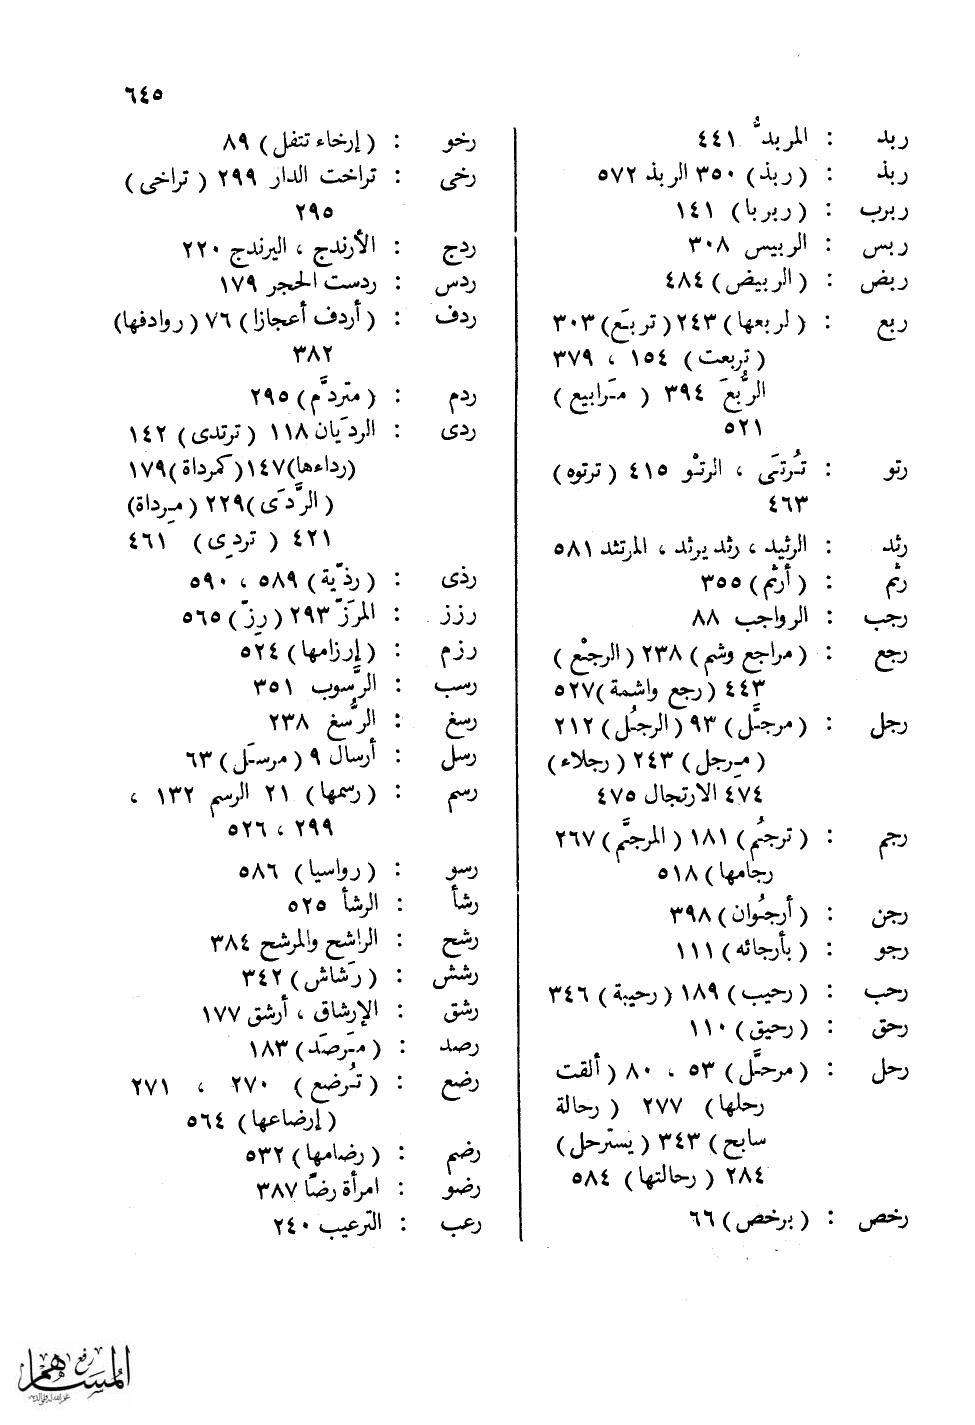 ٦٤٥
ربد : المربدّ ٤٤١
ربذ : ( ربذ ) ٣٥٠ الربذ ٥٧٢
ربرب : ( ربربا ) ١٤١
ربس : الربيس ٣٠٨
ربض : ( الربيض ) ٤٨٤
ربع : ( لربعها ) ٢٤٣ ( تربَع ) ٣٠٣
( تربعت ) ١٥٤ ، ٣٧٩
الرُّبعَ ٣٩٤ ( مَرابيع )
٥٢١
رتو : تُرتَى ، الرتْو ٤١٥ ( ترتوه )
٤٦٣
رثد : الرثيد ، رثد يرثد ، المرتثد ٥٨١
رثم : ( أرثم ) ٣٥٥
رجب : الرواجب ٨٨
رجع : ( مراجع وشم ) ٢٣٨ ( الرجْع )
٤٤٣ ( رجع واشمة ) ٥٢٧
رجل : ( مرجَّل ) ٩٣ ( الرجُل ) ٢١٢
( مِرجل ) ٢٤٣ ( رجلاء )
٤٧٤ الارتجال ٤٧٥
رجم : ( ترجُم ) ١٨١ ( المرجَّم ) ٢٦٧
رجامها ) ٥١٨
رجن : ( أرجُوان ) ٣٩٨
رجو : ( بأرجائه ) ١١١
رحب : ( رحيب ) ١٨٩ ( رحيبة ) ٣٤٦
رحق : ( رحيق ) ١١٠
رحل : ( مرحَّل ) ٥٣ ، ٨٠ ( ألقت
رحلها ) ٢٧٧ ( رحالة
سابح ) ٣٤٣ ( يسترحل )
٢٨٤ ( رحالتها ) ٥٨٤
رخص : ( برخص ) ٦٦
رخو : ( إرخاء تتفل ) ٨٩
رخى : تراخت الدار ٢٩٩ ( تراخى )
٢٩٥
ردج : الأرندج ، اليرندج ٢٢٠
ردس : ردست الحجر ١٧٩
ردف : ( أردف أعجازا ) ٧٦ ( روادفها )
٣٨٢
ردم : ( متردَّم ) ٢٩٥
ردى : الردَيان ١١٨ ( ترتدى ) ١٤٢
( رداءها ) ١٤٧ ( كمرداة ) ١٧٩
( الرَّدَى ) ٢٢٩ ( مِرداة )
٤٢١ ( تردِى ) ٤٦١
رذى : ( رذيّة ) ٥٨٩ ، ٥٩٠
رزز : المرَزّ ٢٩٣ ( رِزّ ) ٥٦٥
رزم : ( إرزامها ) ٥٢٤
رسب : الرَّسوب ٣٥١
رسغ : الرُّسغ ٢٣٨
رسل : أرسال ٩ ( مرسَل ) ٦٣
رسم : ( رسمها ) ٢١ الرسم ١٣٢ ،
٢٩٩ ، ٥٢٦
رسو : ( رواسيا ) ٥٨٦
رشأ : الرشأ ٥٢٥
رشح : الراشح والمرشح ٣٨٤
رشش : ( رَشاش ) ٣٤٢
رشق : الإرشاق ، أرشق ١٧٧
رصد : ( مَرصَد ) ١٨٣
رضع : ( تُرضع ) ٢٧٠ ، ٢٧١
( إرضاعها ) ٥٦٤
رضم : ( رضامها ) ٥٣٢
رضو : امرأة رضًا ٣٨٧
رعب : الترعيب ٢٤٠
رفع
المساهم